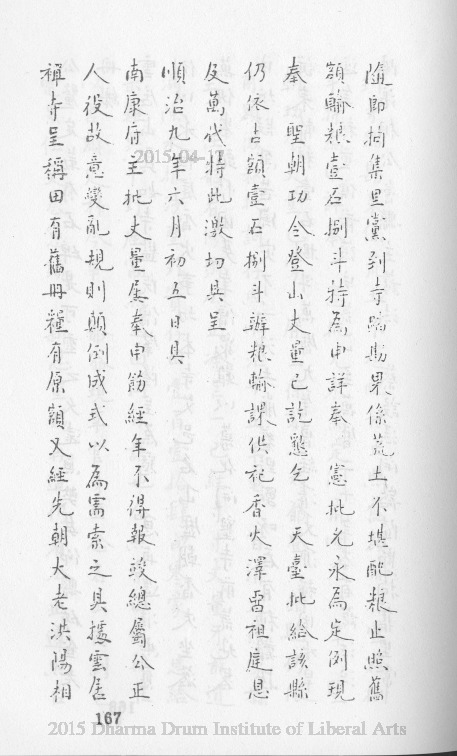 隨即拘集里黨到寺踏勘果係荒土不堪配粮止照舊
額輸粮壹石捌斗特為申詳奉　憲批允永為定例現
奉　聖朝功令登山丈量已訖懇乞　天臺批給該縣
仍依古額壹石捌斗辦粮輸課供祀香火澤留祖庭恩
及萬代特此激切具呈
順治九年六月初五日具
南康府主批丈量屢奉申飭經年不得報竣總屬公正
人役故意變亂規則顛倒成式以為需索之具據雲居
禪寺呈稱田有舊冊糧有原額又經先朝大老洪陽相
167
2015-04-17
2015 Dharma Drum Institute of Liberal Arts